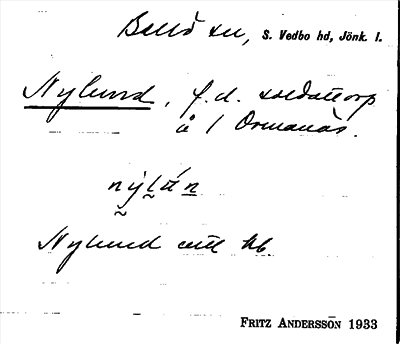 Bellö sn, S. Vedbo hd, Jönk. l.
Nylund, f.d. soldattorp
å / Ormanäs.
Nylund enl. kb.
FRITZ ANDERSSON 1933